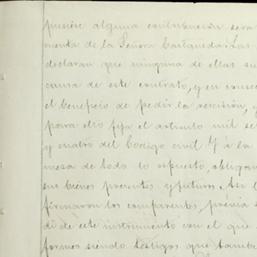 pusiere alguna contribucion sera
menta de la Señora
declaran que ninguna de ellas su
causa de este contrato, y en conse
el beneficio de pedir la rescision, y
para ello fija el articulo mil se
y cuatro del Codigo civil. Y a la
mesa de todo lo espuesto, obligan
sus bienes presentes y futuros. Asi l
firmaron los comparentes, previa
di de este instrumento con el que
formes siendo testigos que tambi